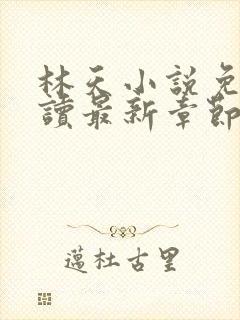 林天小説免
讀最新章節
邁杜古里